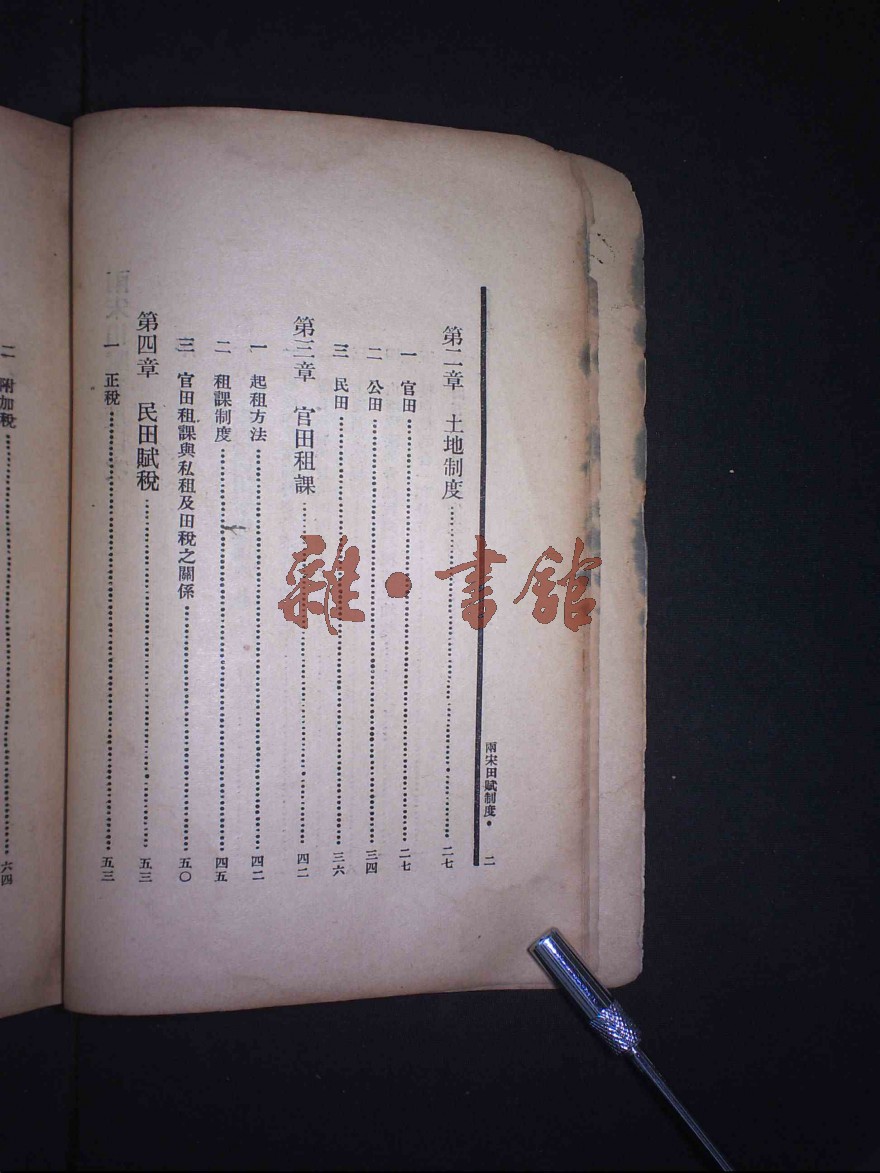 兩宋田賦制度・ 二
第二章 土地制度……二七
一 官田……二七
二 公田……三四
三 民田……三六
第三章 官田租課……四二
一 起租方法……四二
二 租課制度……四五
三 官田租課與私租及田稅之關係……五〇
第四章 民田賦稅……五三
一 正稅……五三
二 附加稅……六四
雜・書館